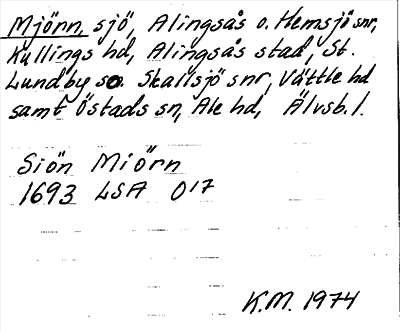 Mjörn, sjö, Alingsås o. Hemsjö snr,
Kullings hd, Alingsås stad, St.
Lundby so. Skallsjö snr, Vättle hd
samt Östads sn, Ale hd, Älvsb. l.
Siön Miörn
1693 LSA O17
K.M. 1974